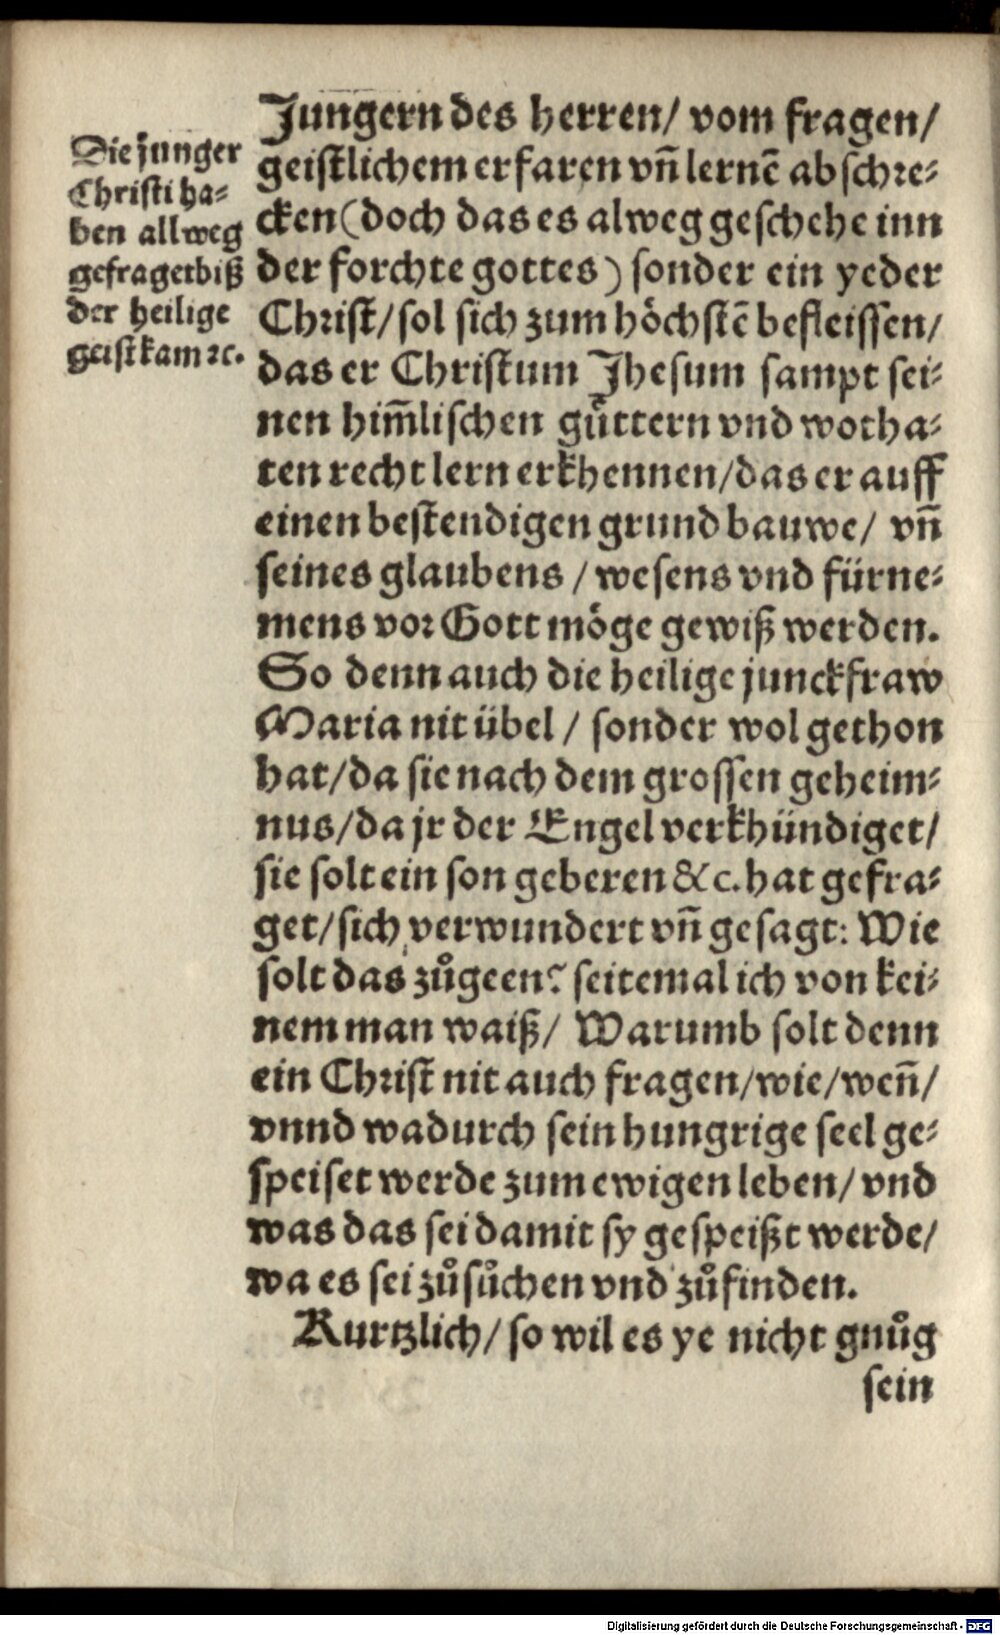 Die junger
Christi ha⸗
ben allweg
gefraget biß
der heilige
geist kam ꝛc.
Jungern des herren/ vom fragen/
geistlichem erfaren vn̄ lernē abschre⸗
cken (doch das es alweg geschehe inn
der forchte gottes) sonder ein yeder
Christ/ sol sich zum höchstē befleissen/
das er Christum Jhesum sampt sei⸗
nen him̄lischen gůttern vnd wotha⸗
ten recht lern erkhennen/ das er auff
einen bestendigen grund bauwe/ vn̄
seines glaubens / wesens vnd fürne⸗
mens vor Gott möge gewiß werden.
So denn auch die heilige junckfraw
Maria nit übel / sonder wol gethon
hat/ da sie nach dem grossen geheim⸗
nus/ da jr der Engel verkhündiget/
sie solt ein son geberen &c. hat gefra⸗
get/ sich verwundert vn̄ gesagt: Wie
solt das zůgeen? seitemal ich von kei⸗
nem man waiß/ Warumb solt denn
ein Christ nit auch fragen/ wie/ wen̄/
vnnd wadurch sein hungrige seel ge⸗
speiset werde zum ewigen leben/ vnd
was das sei damit sy gespeißt werde/
wa es sei zůsůchen vnd zůfinden.
Kurtzlich/ so wil es ye nicht gnůg
sein
Digitalisierung gefördert durch die Deutsche Forschungsgemeinschaft - DFG